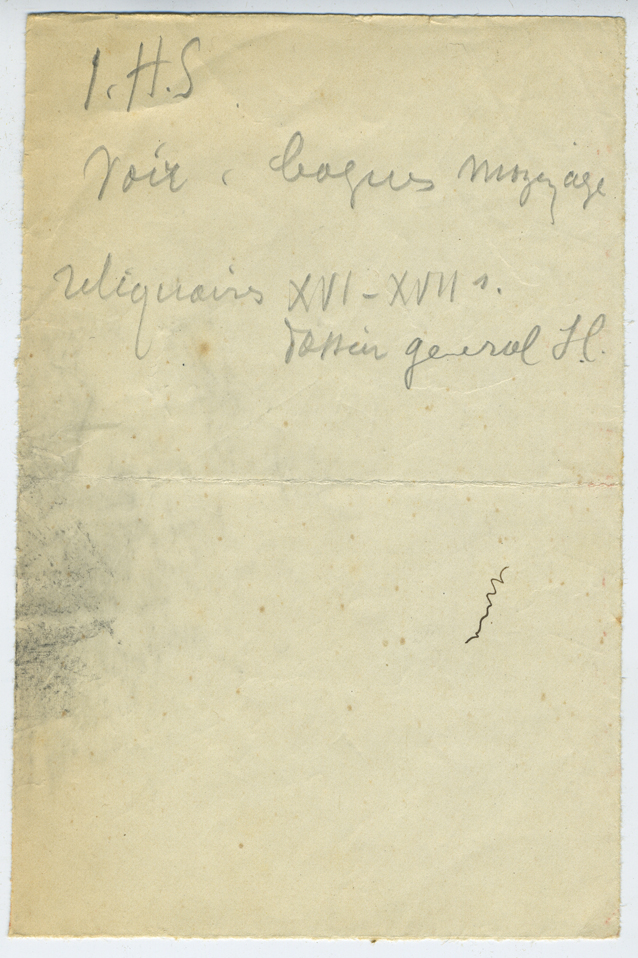 I.H.S
Voir. bagues moyen age
reliquaires XVI-XVII s.
dossier general